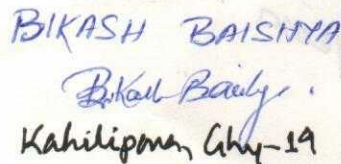 BIKASH BAISHYA
Bikash Baishya.
Kahilipara, Ghy-19